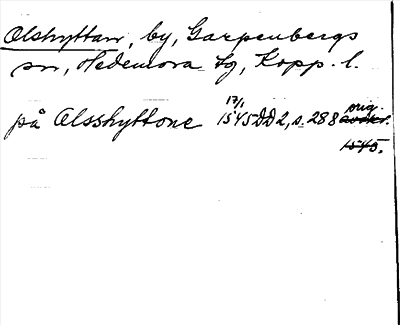 Olshyttan, by, Garpenbergs
sn, Hedemora tg, Kopp. l.
på Olsshyttone 17/1 1545 DD 2, s. 288 orig.
avskr.
1545.